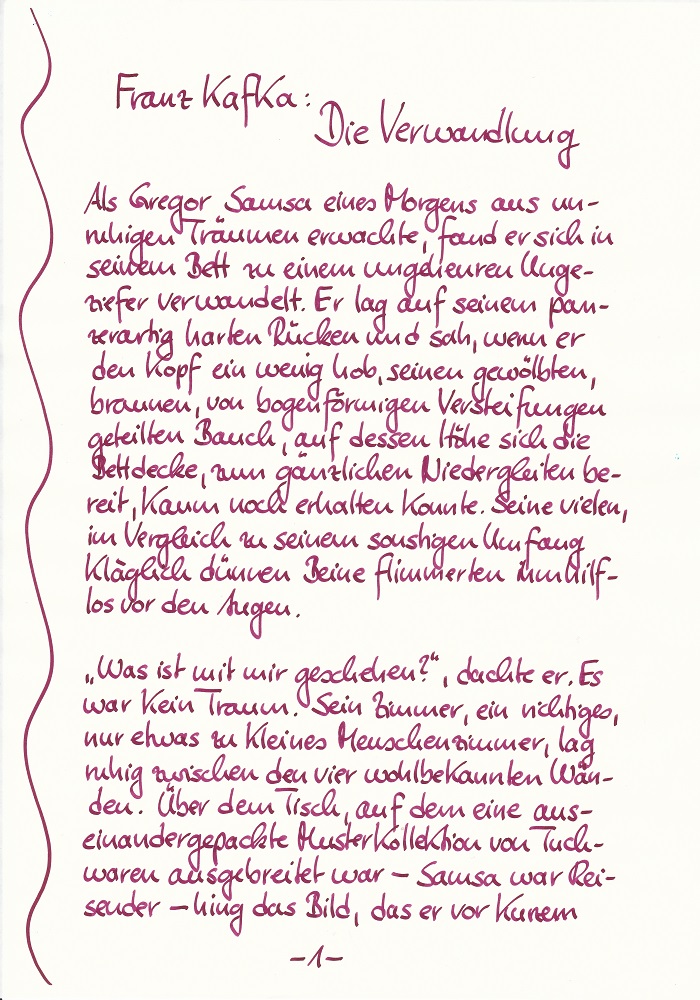 Franz Kafka:
Die Verwandlung
Als Gregor Samsa eines Morgens aus un-
ruhigen Träumen erwachte, fand er sich in
seinem Bett zu einem ungeheuren Unge-
ziefer verwandelt. Er lag auf seinem pan-
zerartig harten Rücken und sah, wenn er
den Kopf ein wenig hob, seinen gewölbten,
braunen, von bogenförmigen Versteifungen
geteilten Bauch, auf dessen Höhe sich die
Bettdecke, zum gänzlichen Niedergleiten be-
reit, kaum noch erhalten konnte. Seine vielen,
im Vergleich zu seinem sonstigen Umfang
kläglich dünnen Beine flimmerten ihm hilf-
los vor den Augen.
„Was ist mit mir geschehen?“, dachte er. Es
war kein Traum. Sein Zimmer, ein richtiges,
nur etwas zu kleines Menschenzimmer, lag
ruhig zwischen den vier wohlbekannten Wän-
den. Über dem Tisch, auf dem eine aus-
einandergepackte Musterkollektion von Tuch-
waren ausgebreitet war – Samsa war Rei-
sender – hing das Bild, das er vor Kurzem
-1-